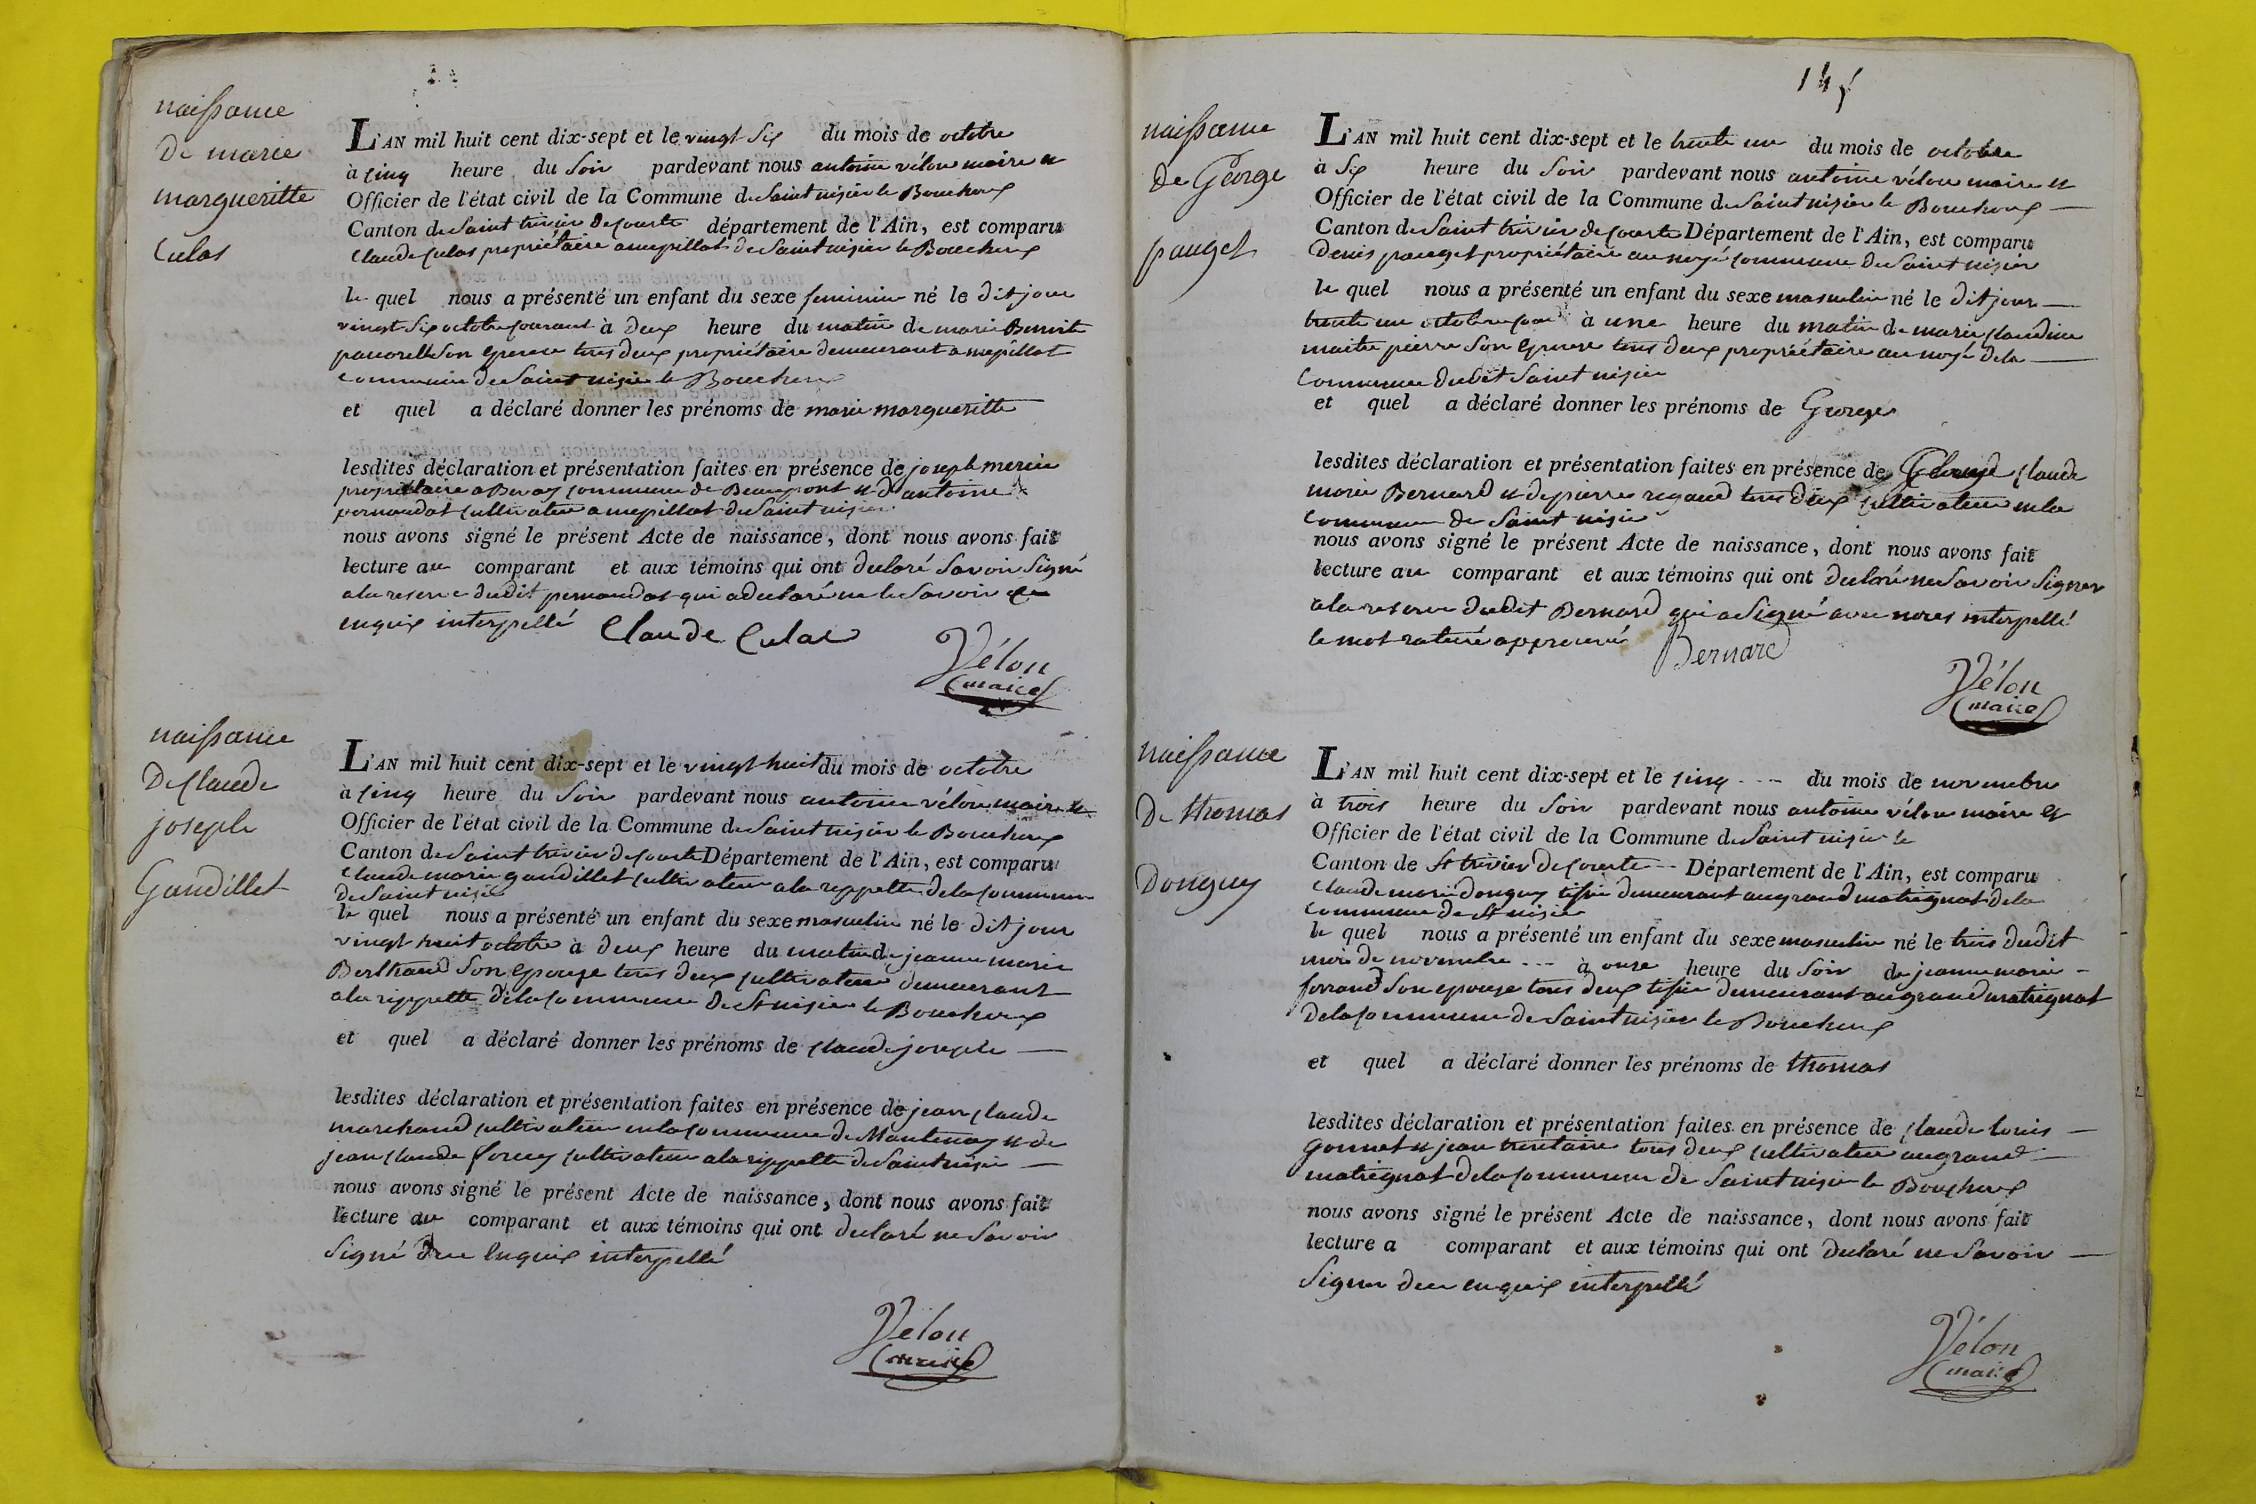 naissance
de marie
margueritte
Culas
L'AN mil huit cent dix-sept et le vingt six du mois de octobre
à cinq heure du soir pardevant nous antoine vélon maire et
Officier de l'état civil de la Commune de Saint nizier le Bouchoux
Canton de Saint trivier de courte département de l'Ain, est comparu
Claude Culas propriétaire a mepillat de Saint nizier le Bouchoux
le quel nous a présenté un enfant du sexe feminin né le dit jour
vingt six octobre courant à deux heure du matin de marie Benoite
son epouse tous deux propriétaire demeurant a mepillat
commune de Saint nizier le Bouchoux
et quel a déclaré donner les prénoms de marie margueritte
lesdites déclaration et présentation faites en présence de joseph mercier
propriétaire a commune de Beaupont et d'antoine
pernodat cultivateur a mepillat de Saint nizier
nous avons signé le présent Acte de naissance, dont nous avons fait
lecture au comparant et aux témoins qui ont declaré Savoir Signé
a la reserve dudit pernodat qui a declaré ne le Savoir de
enquis interpellé Claude Culas
Vélon
maire
naissance
De Claude
joseph
Gandillet
L'AN mil huit cent dix-sept et le vingt huit du mois de octobre
à cinq heure du Soir pardevant nous antoine vélon maire et
Officier de l'état civil de la Commune de Saint nizier le Bouchoux
Canton de Saint trivier de Courte Département de l'Ain, est comparu
Claude marie gandillet cultivateur a la rippette de la Commune
de Saint nizier
le quel nous a présenté un enfant du sexe masculin né le dit jour
vingt huit octobre à deux heure du matin de jeanne marie
Berthaud Son epouse tous deux cultivateur demeurant
a la rippette de la Commune de St nizier le Bouchoux
et quel a déclaré donner les prénoms de Claude joseph
lesdites déclaration et présentation faites en présence de jean Claude
marchand cultivateur en la Commune de Mantenay et de
jean Claude forey cultivateur a la rippette de Saint nizier
nous avons signé le présent Acte de naissance, dont nous avons fait
lecture au comparant et aux témoins qui ont declaré ne Savoir
Signé de ce Enquis interpellé
Vélon
maire
145
naissance
de George
pauget
L'AN mil huit cent dix-sept et le trente un du mois de octobre
à Six heure du Soir pardevant nous antoine vélon maire et
Officier de l'état civil de la Commune de Saint nizier le Bouchoux
Canton de Saint trivier de Courte Département de l'Ain, est comparu
Denis pauget propriétaire au noyé commune de Saint nizier
le quel nous a présenté un enfant du sexe masculin né le dit jour
trente un octobre à une heure du matin de marie Claudine
maitre pierre Son epouse tous deux propriétaire au noyé de la
Commune dudit Saint nizier
et quel a déclaré donner les prénoms de George
lesdites déclaration et présentation faites en présence de Claude
marie Bernard et de pierre regaud tous deux cultivateur en la
Commune de Saint nizier
nous avons signé le présent Acte de naissance, dont nous avons fait
lecture au comparant et aux témoins qui ont declaré ne Savoir Signer
a la reserve dudit Bernard qui a Signé avec nous interpellé
le mot raturé approuvé Bernard
Vélon
maire
naissance
De thomas
Donguy
L'AN mil huit cent dix-sept et le cinq du mois de novembre
à trois heure du Soir pardevant nous antoine vélon maire et
Officier de l'état civil de la Commune de Saint nizier le
Canton de St trivier de Courte Département de l'Ain, est comparu
Claude marie donguy tissier demeurant au grand matrignat de la
commune de St nizier
le quel nous a présenté un enfant du sexe masculin né le trois dudit
mois de novembre à onze heure du Soir de jeanne marie
forrand Son epouse tous deux tissier demeurant au grand matrignat
de la Commune de Saint nizier le Bouchoux
et quel a déclaré donner les prénoms de thomas
lesdites déclaration et présentation faites en présence de Claude louis
Gonnet et jean trontaire tous deux cultivateur au grand
matrignat de la Commune de Saint nizier le Bouchoux
nous avons signé le présent Acte de naissance, dont nous avons fait
lecture a comparant et aux témoins qui ont declaré ne Savoir
Signer de ce enquis interpellé
Vélon
maire